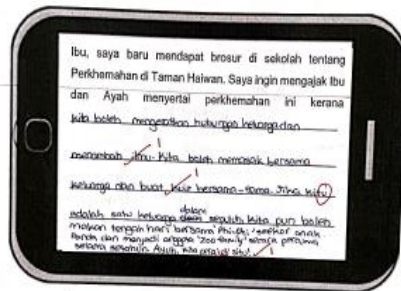 Ibu, saya baru mendapat brosur di sekolah tentang
Perkhemahan di Taman Haiwan. Saya ingin mengajak Ibu
dan Ayah menyertai perkhemahan ini kerana
kita boleh mengeratkan hubungan keluarga dan
menambah ilmu. Kita boleh memasak bersama
keluarga dan buat kuiz bersama-sama. Jika kita
adalah satu keluarga dalam sepuluh kita pun boleh
makan tengah hari bersama seekor anak
Panda dan menjadi anggota "Zoo family" secara percuma
selama setahun. Ayuh, kita pergi situ!